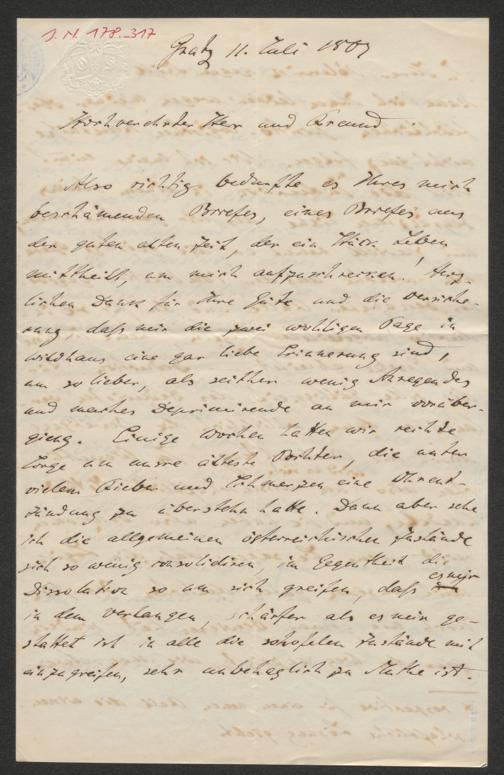 J.N. 178.317
Gratz 11. Juli 1869
Hochverehrter Herr und Freund
Also richtig bedurfte es Ihres mich
beschämenden Briefes, eines Briefes aus
der guten alten Zeit, der ein Stück Leben
mittheilt, um mich aufzuschrecken! Herz-
lichen Dank für Ihre Güte und die Versiche-
rung, daß mir die zwei wohligen Tage in
Wildhaus eine gar liebe Erinnerung sind,
um so lieber, als seither wenig Anregendes
und manches Deprimirende an mir vorüber-
gieng. Einige Wochen hatten wir rechte
Sorge um unsre älteste Tochter, die unter
vielem Fieber und Schmerzen eine Ohrent-
zündung zu überstehn hatte. Dann aber sehe
ich die allgemeinen österreichischen Zustände
sich so wenig consolidiren, im Gegentheil die
Dissolution so um sich greifen, daß es mir
in dem Verlangen, schärfer als es mir ge-
stattet ist in alle die Zustände mit
einzugreifen, sehr unbehaglich zu Muthe ist.